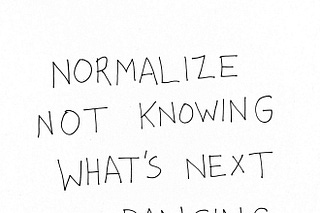 NORMALIZE
NOT KNOWING
WHAT'S NEXT